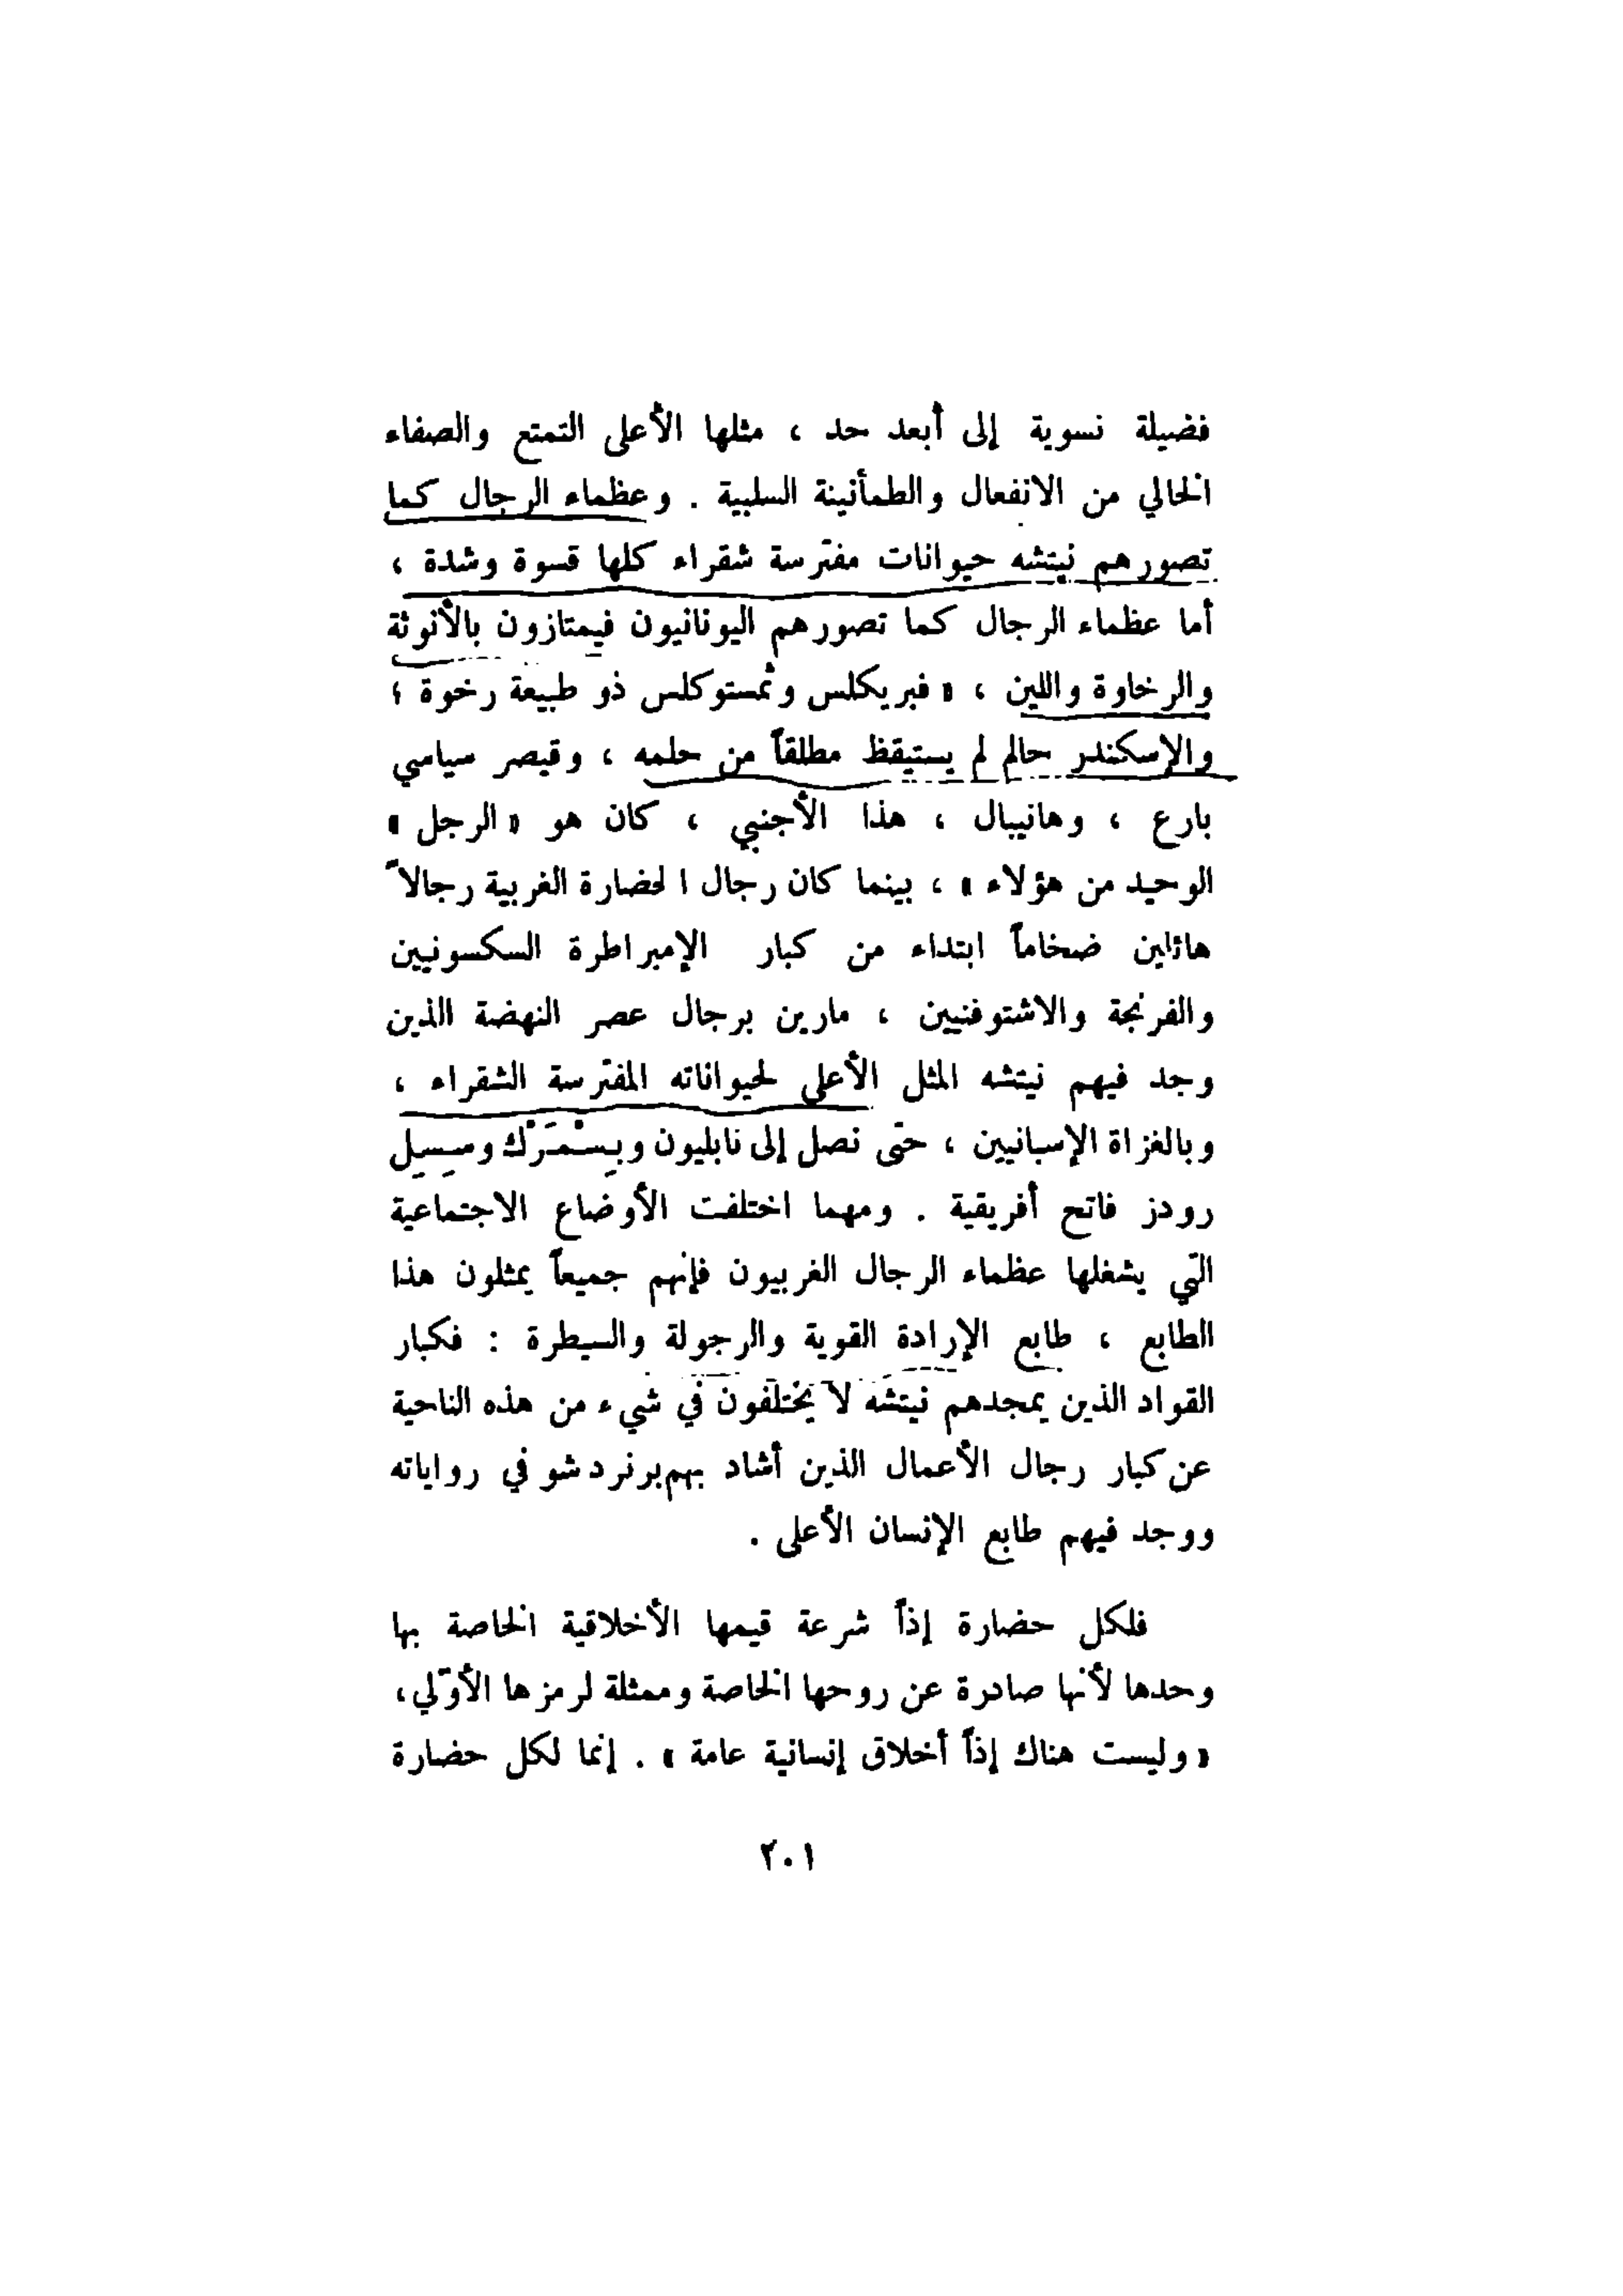 فضيلة نسوية إلى أبعد حد ، مثلها الأعلى التمتع والصفاء
الخالي من الانفعال والطمأنينة السلبية . وعظماء الرجال كما
تصورهم نيتشه حيوانات مفترسة شقراء كلها قسوة وشدة ،
أما عظماء الرجال كما تصورهم اليونانيون فيمتازون بالأنوثة
والرخاوة واللين ، « فبريكلس وثمستوكلس ذو طبيعة رخوة ؛
والإسكندر حالم لم يستيقظ مطلقاً من حلمه ، وقيصر سياسي
بارع ، وهانيبال ، هذا الأجنبي ، كان هو « الرجل »
الوحيد من هؤلاء » ، بينما كان رجال الحضارة الغربية رجالاً
هائلين ضخاماً ابتداء من كبار الإمبراطرة السكسونيين
والفرنجة والاشتوفنيين ، مارين برجال عصر النهضة الذين
وجد فيهم نيتشه المثل الأعلى لحيواناته المفترسة الشقراء ،
وبالغزاة الإسبانيين ، حتى نصل إلى نابليون وبِسْمَرْك وسِسِل
رودز فاتح أفريقية . ومهما اختلفت الأوضاع الاجتماعية
التي يشغلها عظماء الرجال الغربيون فإنهم جميعاً يمثلون هذا
الطابع ، طابع الإرادة القوية والرجولة والسيطرة : فكبار
القواد الذين يمجدهم نيتشه لا يختلفون في شيء من هذه الناحية
عن كبار رجال الأعمال الذين أشاد بهم برنرد شو في رواياته
ووجد فيهم طابع الإنسان الأعلى .
فلكل حضارة إذاً شرعة قيمها الأخلاقية الخاصة بها
وحدها لأنها صادرة عن روحها الخاصة وممثلة لرمزها الأوّلي ،
« وليست هناك إذاً أخلاق إنسانية عامة » . إنما لكل حضارة
٢٠١